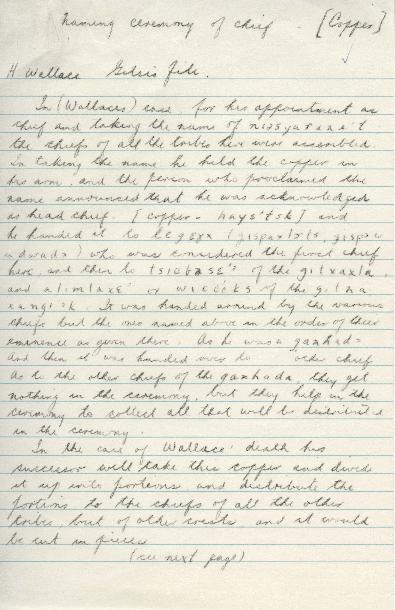 Naming ceremony of chief - [Copper]
H Wallace
In (Wallace's) case, for his appointment as
chief and taking the name of
the chiefs of all the tribes here were assembled.
In taking the name he held the copper in
his arm, and the person who proclaimed the
name announced that he was acknowledged
as head chief. [copper - hays'ɛtsk] and
he handed it to legɛ́ɛx (gispaxlɔ'ts,
) who was considered the first chief
here, and then to of the gitxaxła,
and or of the
It was handed around by the various
chiefs but the ones named above in the order of their
eminence as given there. As he was a ganhada
and then it was handed over to other chief
As to the other chiefs of the ganhada, they get
nothing in the ceremony, but they help in the
ceremony to collect all that will be distributed
in the ceremony.
In the case of Wallace' death his
successor will take this copper and divide
it up into portions, and distribute the
portions to the chiefs of all the other
tribes, but of other crests, and it would
be cut in pieces
(see next page)